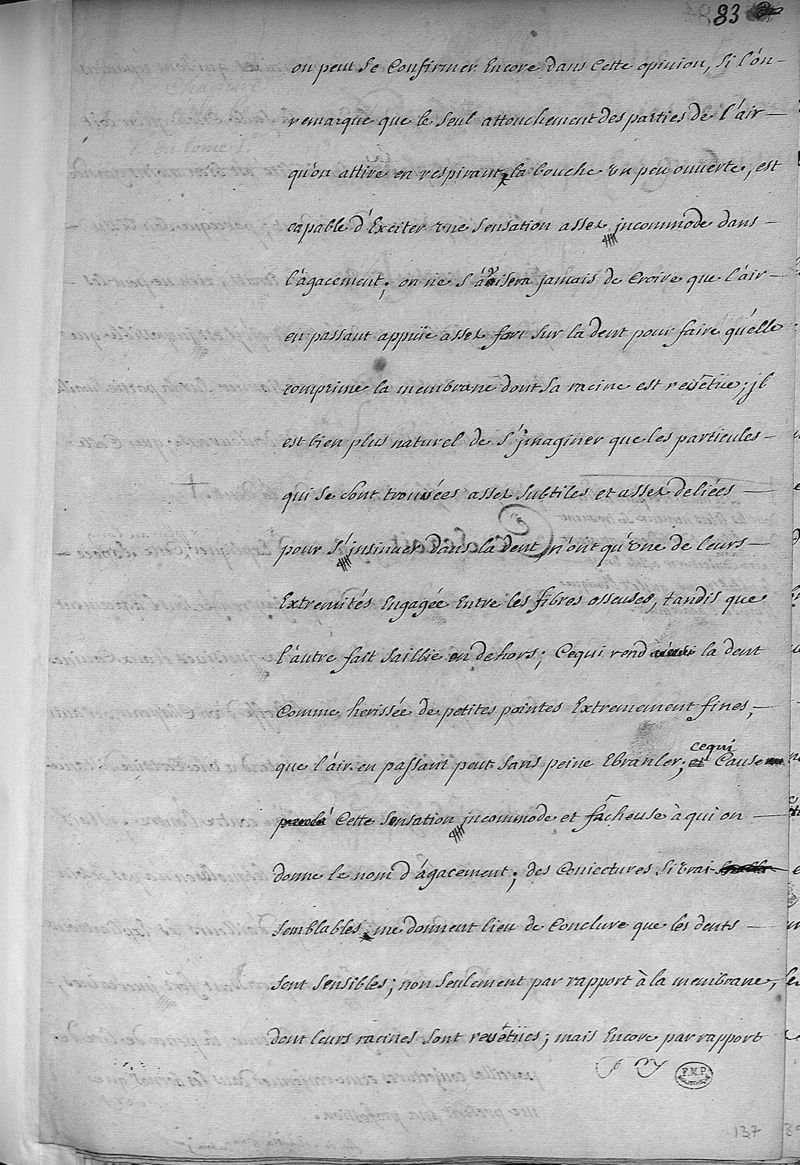 83
on peut se Confirmer Encore dans Cette opinion, si l'on
remarque que le seul attouchement des parties de l'air
qu'on attire en respirant, la bouche un peu ouverte, est
capable d'Exciter une sensation assez jncommode dans
l'agacement; on ne s'avisera jamais de Croire que l'air
en passant appuïe assez fort sur la dent pour faire qu'elle
comprime la membrane dont sa racine est revêtüe; jl
est bien plus naturel de s'jmaginer que les particules
qui se sont trouvées assez subtiles et assez deliées
pour s'jnsinuer dans la dent, n'ont qu'une de leurs
Extremités Engagée Entre les fibres osseuses, tandis que
l'autre fait saillie en dehors; Cequi rend la dent
Comme herissée de petites pointes Extremement fines,
que l'air en passant peut sans peine Ebranler; et cequi Cause
Cette sensation jncommode et fâcheuse à qui on
donne le nom d'agacement; des Coniectures si vrai
semblables, me donnent lieu de Conclure que les dents
sont sensibles; non seulement par rapport à la membrane,
dont leurs racines sont revêtües; mais Encore par rapport
F.M.P.
137